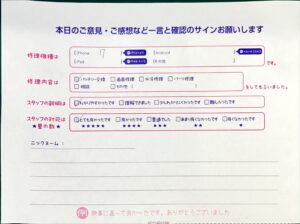 本日のご意見・ご感想など一言と確認のサインお願いします
修理機種は
iPhone 17
Android
iPad
その他
修理内容は
バッテリー交換 画面修理 水没修理 パーツ修理
相談 その他
をしてもらいました。
スタッフの説明は
わかりやすかったです 理解できました 少しわかりにくかったです 難しかったです
スタッフの対応は
とても良かったです 良かったです 普通でした あまり良くなかったです 良くなかったです
★星の数★
★★★★★ ★★★★ ★★★ ★★ ★
ニックネーム：
無事に直って良かったです。ありがとうございました。